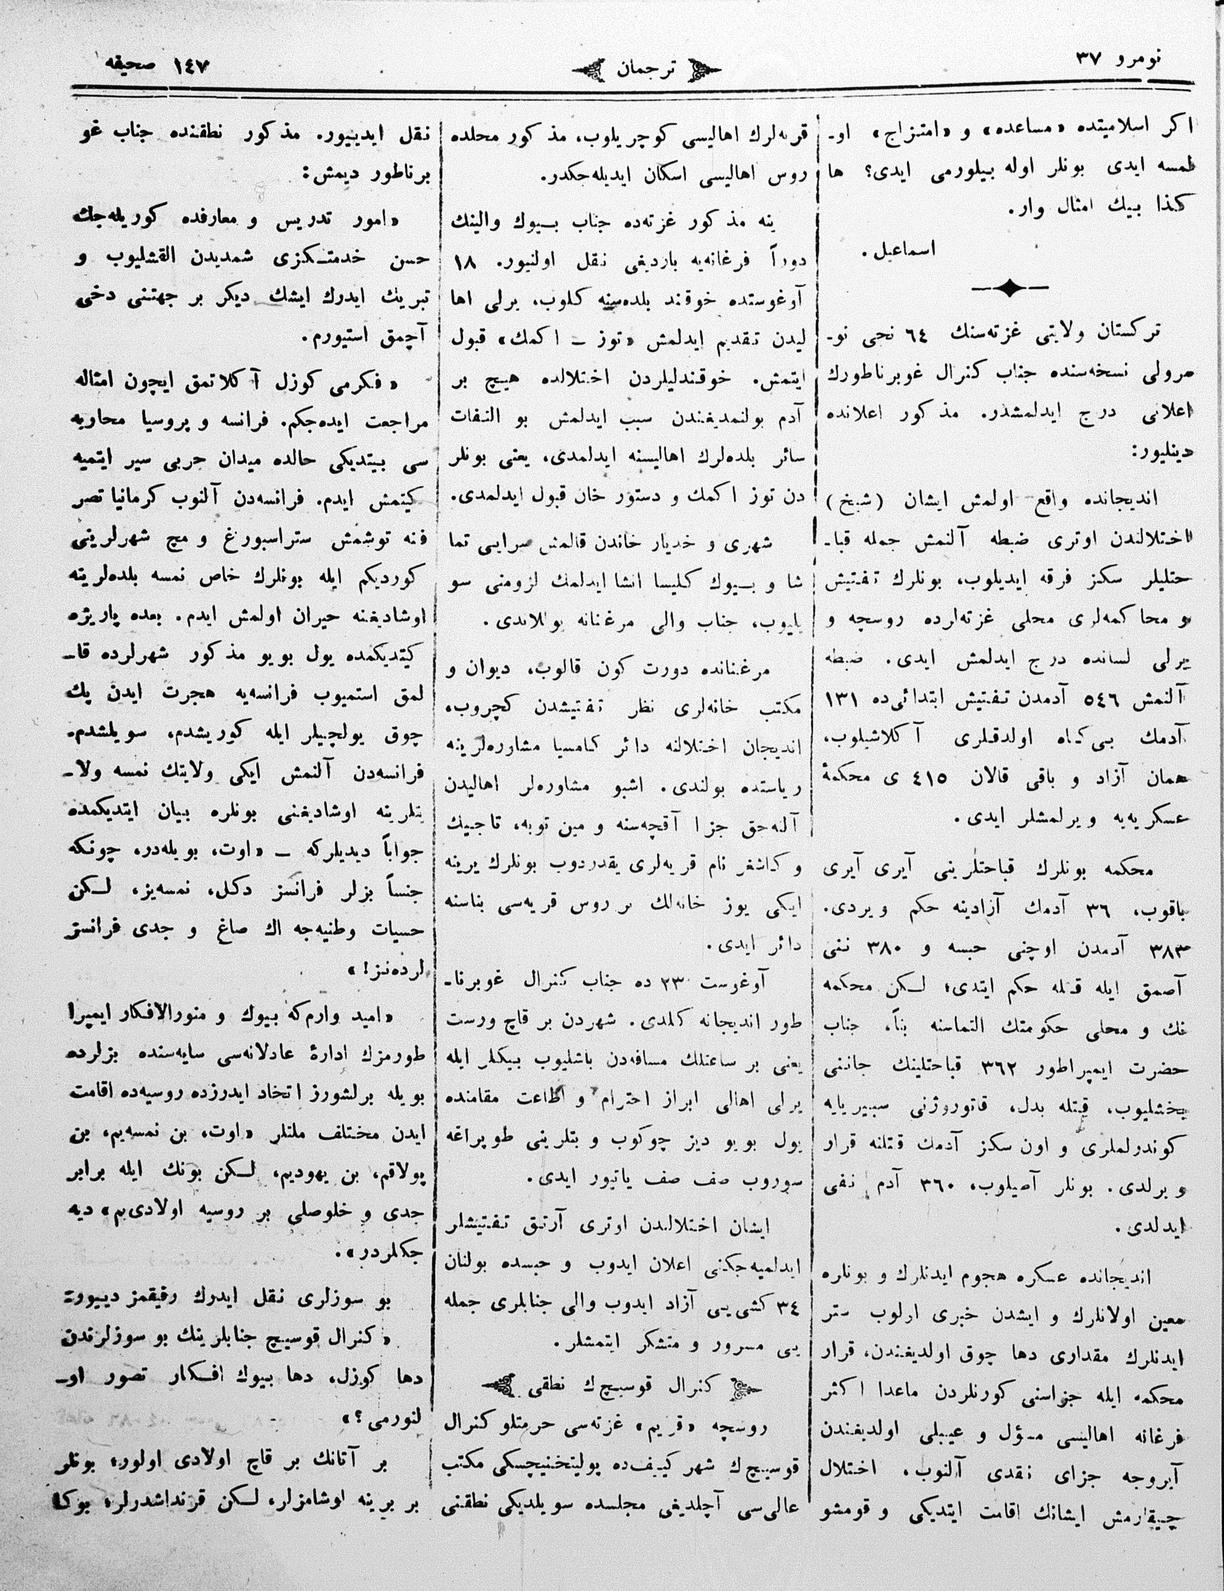 نومرو ٣٧
ترجمان
١٤٧ صحيفه
اكر اسلاميتده «مساعده» و «امتزاج» او-
لمسه ايدى بونلر اوله بيلورمى ايدى؟ ها
كذا بيك امثال وار.
اسماعيل.
تركستان ولايتى غزته‌سنك ٦٤ نجى نو-
مرولى نسخه‌سنده جناب كنرال غوبرناطورك
اعلانى درج ايدلمشدر. مذكور اعلانده
دينليور:
انديجانده واقع اولمش ايشان (شيخ)
اختلالندن اوترى ضبطه آلنمش جمله قبا-
حتليلر سكز فرقه ايديلوب، بونلرك تفتيش
و محاكمه‌لرى محلى غزته‌لرده روسچه و
يرلى لسانده درج ايدلمش ايدى. ضبطه
آلنمش ٥٤٦ آدمدن تفتيش ابتدائى‌ده ١٣١
آدمك بى‌كناه اولدقلرى آكلاشيلوب،
همان آزاد و باقى قالان ٤١٥ ى محكمۀ
عسكريه‌يه ويرلمشلر ايدى.
محكمه بونلرك قباحتلرينى آيرى آيرى
باقوب، ٣٦ آدمك آزادينه حكم ويردى.
٣٨٣ آدمدن اوچنى حبسه و ٣٨٠ ننى
آصمق ايله قتله حكم ايتدى؛ لكن محكمه
نك و محلى حكومتك التماسنه بناً، جناب
حضرت ايمپراطور ٣٦٢ قباحتلينك جاننى
بخشليوب، قتله بدل، قاتورژنى سيبيريايه
كوندرلملرى و اون سكز آدمك قتلنه قرار
ويرلدى. بونلر آصيلوب، ٣٦٠ آدم نفى
ايدلدى.
انديجانده عسكره هجوم ايدنلرك و بونلره
معين اولانلرك و ايشدن خبرى ارلوب ستر
ايدنلرك مقدارى دها چوق اولديغندن، قرار
محكمه ايله جزاسنى كورنلردن ماعدا اكثر
فرغانه اهاليسى مسؤل و عيبلى اولديغندن
آيروجه جزاى نقدى آلنوب، اختلال
چيقارمش ايشانك اقامت ايتديكى و قومشو
قريه‌لرك اهاليسى كوچريلوب، مذكور محلده
روس اهاليسى اسكان ايديله‌جكدر.
ينه مذكور غزته‌ده جناب بيوك والينك
دوراً فرغانه‌يه بارديغى نقل اولنيور. ١٨
آوغوستده خوقند بلده‌سنه كلوب، يرلى اها
ليدن تقديم ايدلمش «توز - اكمك» قبول
ايتمش. خوقندليلردن اختلالده هيچ بر
آدم بولنمديغندن سبب ايدلمش بو التفات
سائر بلده‌لرك اهاليسنه ايدلمدى، يعنى بونلر
دن توز اكمك و دستور خان قبول ايدلمدى.
شهرى و خديار خاندن قالمش سرايى تما
شا و بيوك كليسا انشا ايدلمك لزومنى سو
يليوب، جناب والى مرغنانه يوللاندى.
مرغنانده دورت كون قالوب، ديوان و
مكتب خانه‌لرى نظر تفتيشدن كچروب،
انديجان اختلالنه دائر كامسيا مشاوره‌لرينه
رياستده بولندى. اشبو مشاوره‌لر اهاليدن
آله‌جق جزا آقچه‌سنه و مين توبه، تاجيك
و كاشغر نام قريه‌لرى يقدردوب بونلرك يرينه
ايكى يوز خانه‌لك بر روس قريه‌سى بناسنه
دائر ايدى.
آوغوست ٢٣ ده جناب كنرال غوبرنا-
طور انديجانه كلدى. شهردن بر قاچ ورست
يعنى بر ساعتلك مسافه‌دن باشليوب بيكلر ايله
يرلى اهالى ابراز احترام و اطاعت مقامنده
يول بويو ديز چوكوب و بتلرينى طوپراغه
سوروب صف صف ياتيور ايدى.
ايشان اختلالندن اوترى آرتق تفتيشلر
ايدلميه‌جكنى اعلان ايدوب و حبسده بولنان
٣٤ كشى‌يى آزاد ايدوب والى جنابلرى جمله
يى مسرور و متشكر ايتمشلر.
كنرال قوسيچ‌ك نطقى
روسچه «قريم» غزته‌سى حرمتلو كنرال
قوسيچ‌ك شهر كييف‌ده پوليتخنيچسكى مكتب
عالى‌سى آچلديغى مجلسده سويلديكى نطقنى
نقل ايدييور. مذكور نطقنده جناب غو
برناطور ديمش:
«امور تدريس و معارفده كوريله‌جك
حسن خدمتكزى شمديدن القشليوب و
تبريك ايدرك ايشك ديكر بر جهتنى دخى
آچمق استيورم.
«فكرمى كوزل آكلاتمق ايچون امثاله
مراجعت ايده‌جكم. فرانسه و پروسيا محاربه
سى بيتديكى حالده ميدان حربى سير ايتميه
كيتمش ايدم. فرانسه‌دن آلنوب كرمانيا تصر
فنه توشمش ستراسبورغ و مچ شهرلرينى
كورديكم ايله بونلرك خاص نمسه بلده‌لرينه
اوشاديغنه حيران اولمش ايدم. بعده پاريژه
كيتديكمده يول بويو مذكور شهرلرده قا-
لمق استميوب فرانسه‌يه هجرت ايدن پك
چوق يولچيلر ايله كوريشدم، سويلشدم.
فرانسه‌دن آلنمش ايكى ولايتك نمسه ولا-
يتلرينه اوشاديغنى بونلره بيان ايتديكمده
جواباً ديديلركه - «اوت، بويله‌در، چونكه
جنساً بزلر فرانسز دكل، نمسه‌يز، لكن
حسيات وطنيه‌جه اك صاغ و جدى فرانسز
لرده‌نز!»
«اميد وارم‌كه بيوك و منورالافكار ايمپرا
طورمزك ادارۀ عادلانه‌سى سايه‌سنده بزلرده
بويله برلشورز اتخاد ايدرزده روسيه‌ده اقامت
ايدن مختلف ملتلر «اوت، بن نمسه‌يم، بن
پولاقم، بن يهوديم، لكن بونك ايله برابر
جدى و خلوصلى بر روسيه اولادى‌يم» ديه
جكلردر».
بو سوزلرى نقل ايدرك رفيقمز دييور:
«كنرال قوسيچ جنابلرينك بو سوزلرندن
دها كوزل، دها بيوك افكار تصور او-
لنورمى؟»
بر آتانك بر قاچ اولادى اولور؛ بونلر
بر برينه اوشامزلر، لكن قرنداشدرلر؛ بوكا